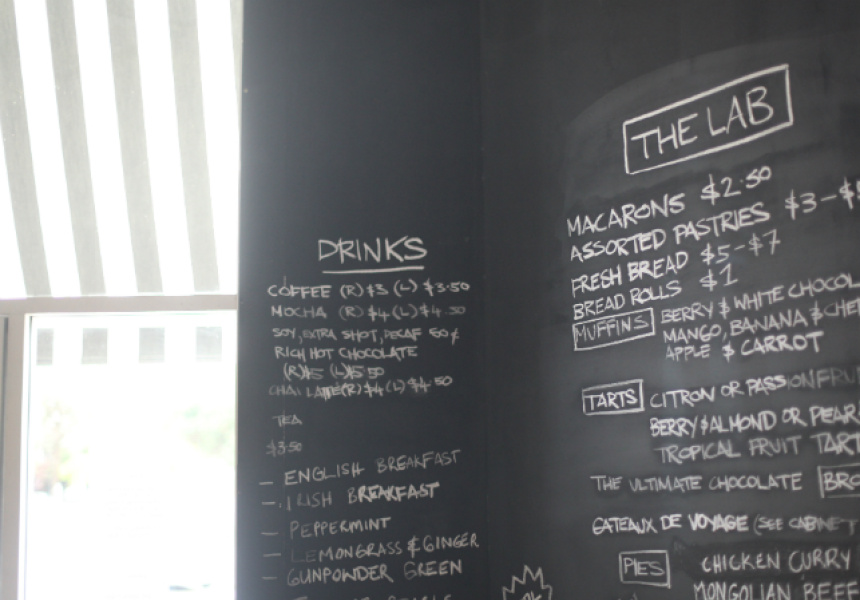 DRINKS
COFFEE (R) $3 (L) $3.50
MOCHA (R) $4 (L) $4.50
SOY, EXTRA SHOT, DECAF 50¢
RICH HOT CHOCOLATE
(R)$5 (L)$5.50
CHAI LATTE(R) $4 (L) $4.50
TEA
$3.50
– ENGLISH BREAKFAST
– IRISH BREAKFAST
– PEPPERMINT
– LEMONGRASS & GINGER
– GUNPOWDER GREEN
THE LAB
MACARONS $2.50
ASSORTED PASTRIES $3–$
FRESH BREAD $5–$7
BREAD ROLLS $1
MUFFINS BERRY & WHITE CHOCOL
MANGO, BANANA & CHE
APPLE & CARROT
TARTS CITRON OR PASSIONFRU
BERRY & ALMOND OR PEAR
TROPICAL FRUIT TART
THE ULTIMATE CHOCOLATE BRO
GATEAUX DE VOYAGE (SEE CABINET
PIES CHICKEN CURRY
MONGOLIAN BEEF